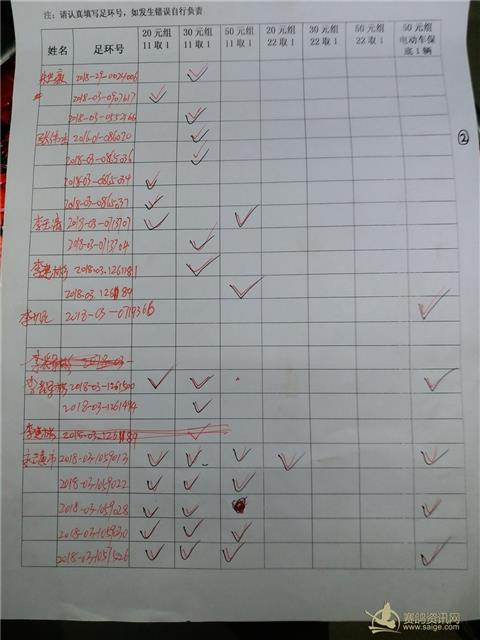 注：请认真填写足环号，如发生错误自行负责
姓名 足环号 20元组11取1 30元组11取1 50元组11取1 20元组22取1 30元组22取1 50元组22取1 50元组电动车保底1辆
2018-29-0024006 ✓
2018-03-0907617 ✓
2018-03-0552166 ✓
2016-01-086020 ✓
②
2018-03-0865036 ✓
2018-03-0865034 ✓
2018-03-0865037 ✓
2018-03-0713707 ✓ ✓
2018-03-0713704 ✓
2018-03-1261181 ✓
2018-03-1261189 ✓
2018-03-0719366 ✓
2018-03-
2018-03-1261500 ✓ ✓ ✓
2018-03-1261494 ✓
2018-03-1261189 ✓
2018-03-1059013 ✓ ✓ ✓ ✓ ✓
2018-03-1059022 ✓ ✓ ✓
2018-03-1059028 ✓ ✓ ✓
2018-03-1058030 ✓ ✓ ✓
2018-03-1057526 ✓ ✓ ✓ ✓
赛鸽资讯网
www.saige.com